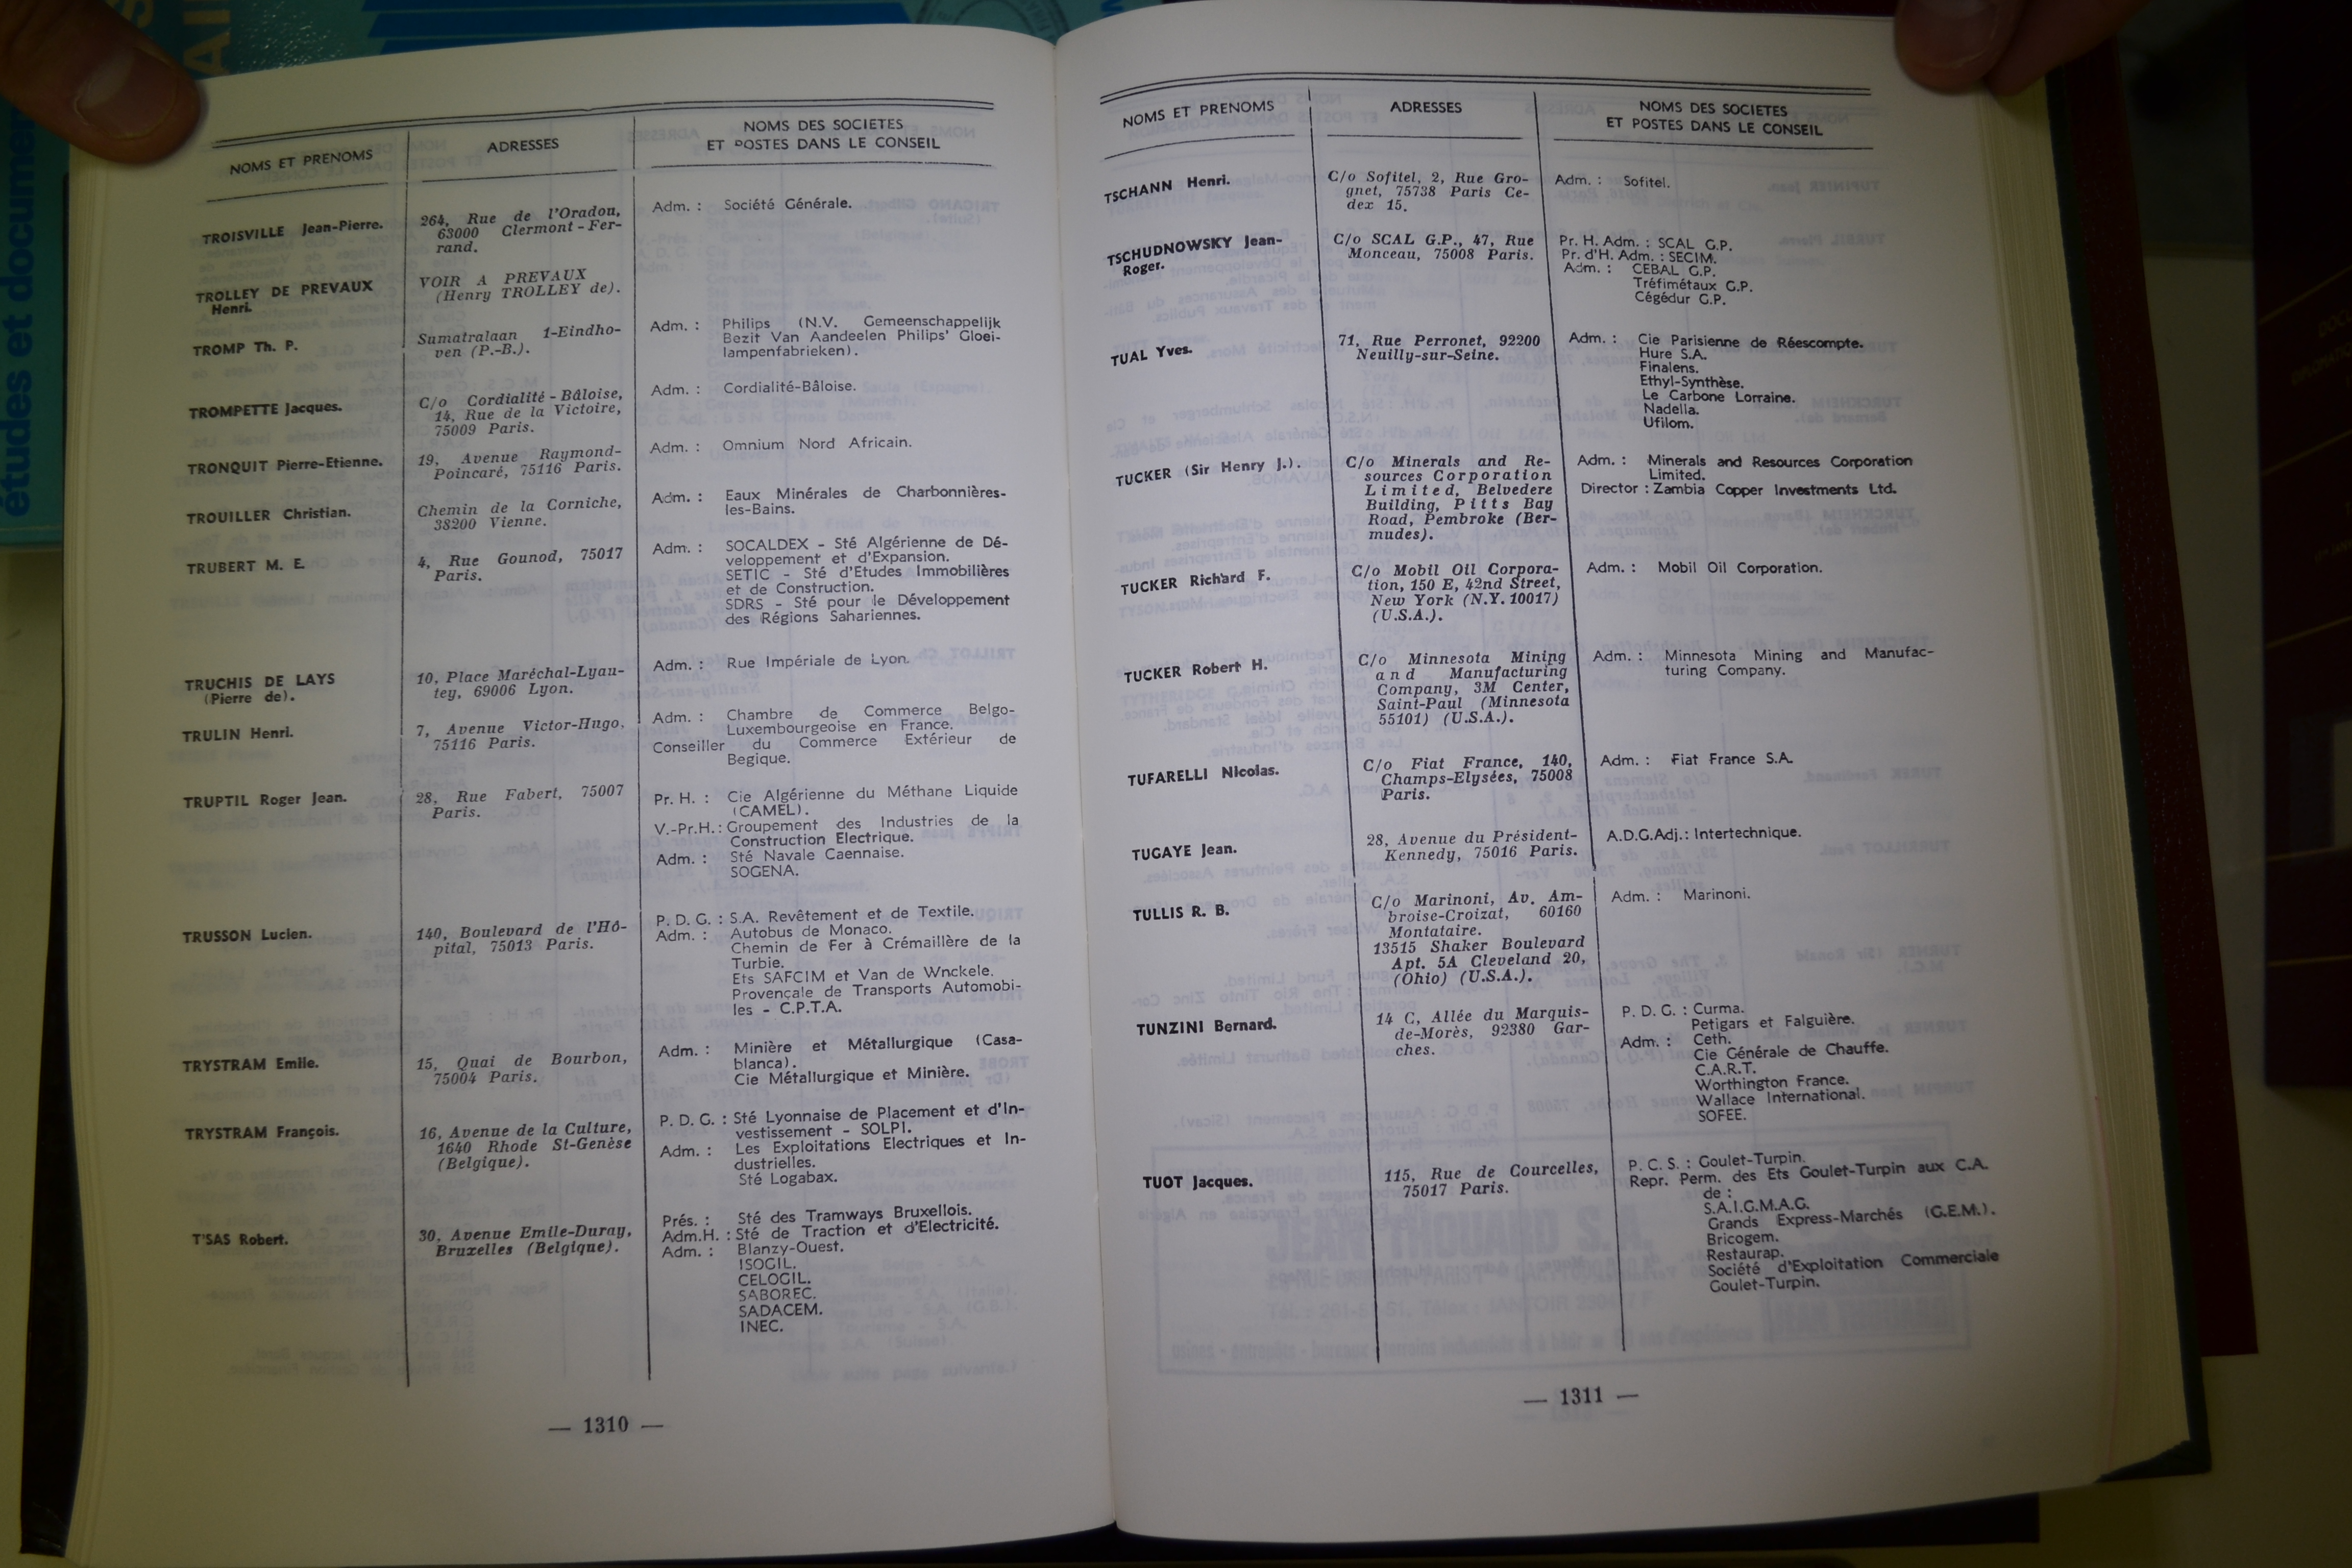 études et documen
NOMS ET PRENOMS
ADRESSES
NOMS DES SOCIETES
ET POSTES DANS LE CONSEIL
TROISVILLE Jean-Pierre.
264, Rue de l'Oradou,
63000 Clermont-Fer-
rand.
Adm. : Société Générale.
TROLLEY DE PREVAUX
Henri.
VOIR A PREVAUX
(Henry TROLLEY de).
TROMP Th. P.
Sumatralaan 1-Eindho-
ven (P.-B.).
Adm. : Philips (N.V. Gemeenschappelijk
Bezit Van Aandeelen Philips' Gloei-
lampenfabrieken).
TROMPETTE Jacques.
C/o Cordialité-Bâloise,
14, Rue de la Victoire,
75009 Paris.
Adm. : Cordialité-Bâloise.
TRONQUIT Pierre-Etienne.
19, Avenue Raymond-
Poincaré, 75116 Paris.
Adm. : Omnium Nord Africain.
TROUILLER Christian.
Chemin de la Corniche,
38200 Vienne.
Adm. : Eaux Minérales de Charbonnières-
les-Bains.
TRUBERT M. E.
4, Rue Gounod, 75017
Paris.
Adm. : SOCALDEX - Sté Algérienne de Dé-
veloppement et d'Expansion.
SETIC - Sté d'Etudes Immobilières
et de Construction.
SDRS - Sté pour le Développement
des Régions Sahariennes.
TRUCHIS DE LAYS
(Pierre de).
10, Place Maréchal-Lyau-
tey, 69006 Lyon.
Adm. : Rue Impériale de Lyon.
TRULIN Henri.
7, Avenue Victor-Hugo,
75116 Paris.
Adm. : Chambre de Commerce Belgo-
Luxembourgeoise en France.
Conseiller du Commerce Extérieur de
Begique.
TRUPTIL Roger Jean.
28, Rue Fabert, 75007
Paris.
Pr. H. : Cie Algérienne du Méthane Liquide
(CAMEL).
V.-Pr.H. : Groupement des Industries de la
Construction Electrique.
Adm. : Sté Navale Caennaise.
SOGENA.
TRUSSON Lucien.
140, Boulevard de l'Hô-
pital, 75013 Paris.
P. D. G. : S.A. Revêtement et de Textile.
Adm. : Autobus de Monaco.
Chemin de Fer à Crémaillère de la
Turbie.
Ets SAFCIM et Van de Wnckele.
Provençale de Transports Automobi-
les - C.P.T.A.
TRYSTRAM Emile.
15, Quai de Bourbon,
75004 Paris.
Adm. : Minière et Métallurgique (Casa-
blanca).
Cie Métallurgique et Minière.
TRYSTRAM François.
16, Avenue de la Culture,
1640 Rhode St-Genèse
(Belgique).
P. D. G. : Sté Lyonnaise de Placement et d'In-
vestissement - SOLPI.
Adm. : Les Exploitations Electriques et In-
dustrielles.
Sté Logabax.
T'SAS Robert.
30, Avenue Emile-Duray,
Bruxelles (Belgique).
Prés. : Sté des Tramways Bruxellois.
Adm.H. : Sté de Traction et d'Electricité.
Adm. : Blanzy-Ouest.
ISOGIL.
CELOGIL.
SABOREC.
SADACEM.
INEC.
— 1310 —
NOMS ET PRENOMS
ADRESSES
NOMS DES SOCIETES
ET POSTES DANS LE CONSEIL
TSCHANN Henri.
C/o Sofitel, 2, Rue Gro-
gnet, 75738 Paris Ce-
dex 15.
Adm. : Sofitel.
TSCHUDNOWSKY Jean-
Roger.
C/o SCAL G.P., 47, Rue
Monceau, 75008 Paris.
Pr. H. Adm. : SCAL G.P.
Pr. d'H. Adm. : SECIM.
Adm. : CEBAL G.P.
Tréfimétaux G.P.
Cégédur G.P.
TUAL Yves.
71, Rue Perronet, 92200
Neuilly-sur-Seine.
Adm. : Cie Parisienne de Réescompte.
Hure S.A.
Finalens.
Ethyl-Synthèse.
Le Carbone Lorraine.
Nadella.
Ufilom.
TUCKER (Sir Henry J.).
C/o Minerals and Re-
sources Corporation
Limited, Belvedere
Building, Pitts Bay
Road, Pembroke (Ber-
mudes).
Adm. : Minerals and Resources Corporation
Limited.
Director : Zambia Copper Investments Ltd.
TUCKER Richard F.
C/o Mobil Oil Corpora-
tion, 150 E, 42nd Street,
New York (N.Y. 10017)
(U.S.A.).
Adm. : Mobil Oil Corporation.
TUCKER Robert H.
C/o Minnesota Mining
and Manufacturing
Company, 3M Center,
Saint-Paul (Minnesota
55101) (U.S.A.).
Adm. : Minnesota Mining and Manufac-
turing Company.
TUFARELLI Nicolas.
C/o Fiat France, 140,
Champs-Elysées, 75008
Paris.
Adm. : Fiat France S.A.
TUGAYE Jean.
28, Avenue du Président-
Kennedy, 75016 Paris.
A.D.G.Adj. : Intertechnique.
TULLIS R. B.
C/o Marinoni, Av. Am-
broise-Croizat, 60160
Montataire.
13515 Shaker Boulevard
Apt. 5A Cleveland 20,
(Ohio) (U.S.A.).
Adm. : Marinoni.
TUNZINI Bernard.
14 C, Allée du Marquis-
de-Morès, 92380 Gar-
ches.
P. D. G. : Curma.
Petigars et Falguière.
Adm. : Ceth.
Cie Générale de Chauffe.
C.A.R.T.
Worthington France.
Wallace International.
SOFEE.
TUOT Jacques.
115, Rue de Courcelles,
75017 Paris.
P. C. S. : Goulet-Turpin.
Repr. Perm. des Ets Goulet-Turpin aux C.A.
de :
S.A.I.G.M.A.G.
Grands Express-Marchés (G.E.M.).
Bricogem.
Restaurap.
Société d'Exploitation Commerciale
Goulet-Turpin.
— 1311 —